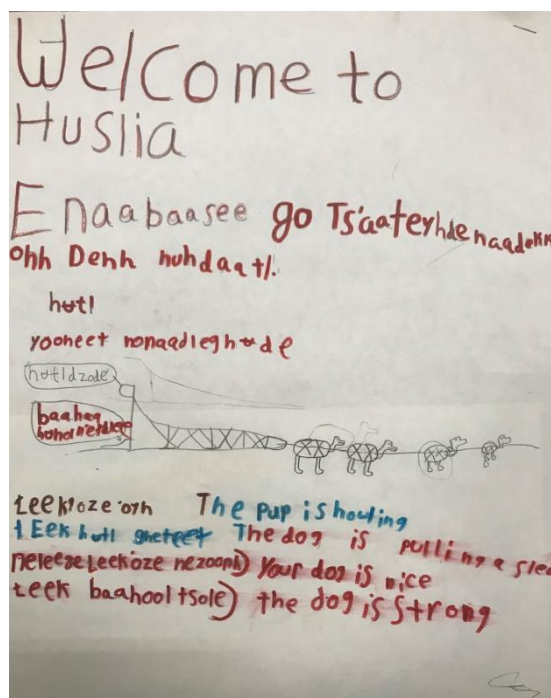 Welcome to
Huslia
Enaabaasee go Ts'aateyhdenaadekk
ohh Denh huhdaatl.
hʉtl
yooneet nonaadleghʉde
hʉtldzode
baahaa
Łeekk'oze oth The pup is howling
łEEk hʉtl gheteeł The dog is pulling a sled
neleeze Leek'oze nezoonh) Your dog is nice
Łeek baahooltsole) the dog is Strong